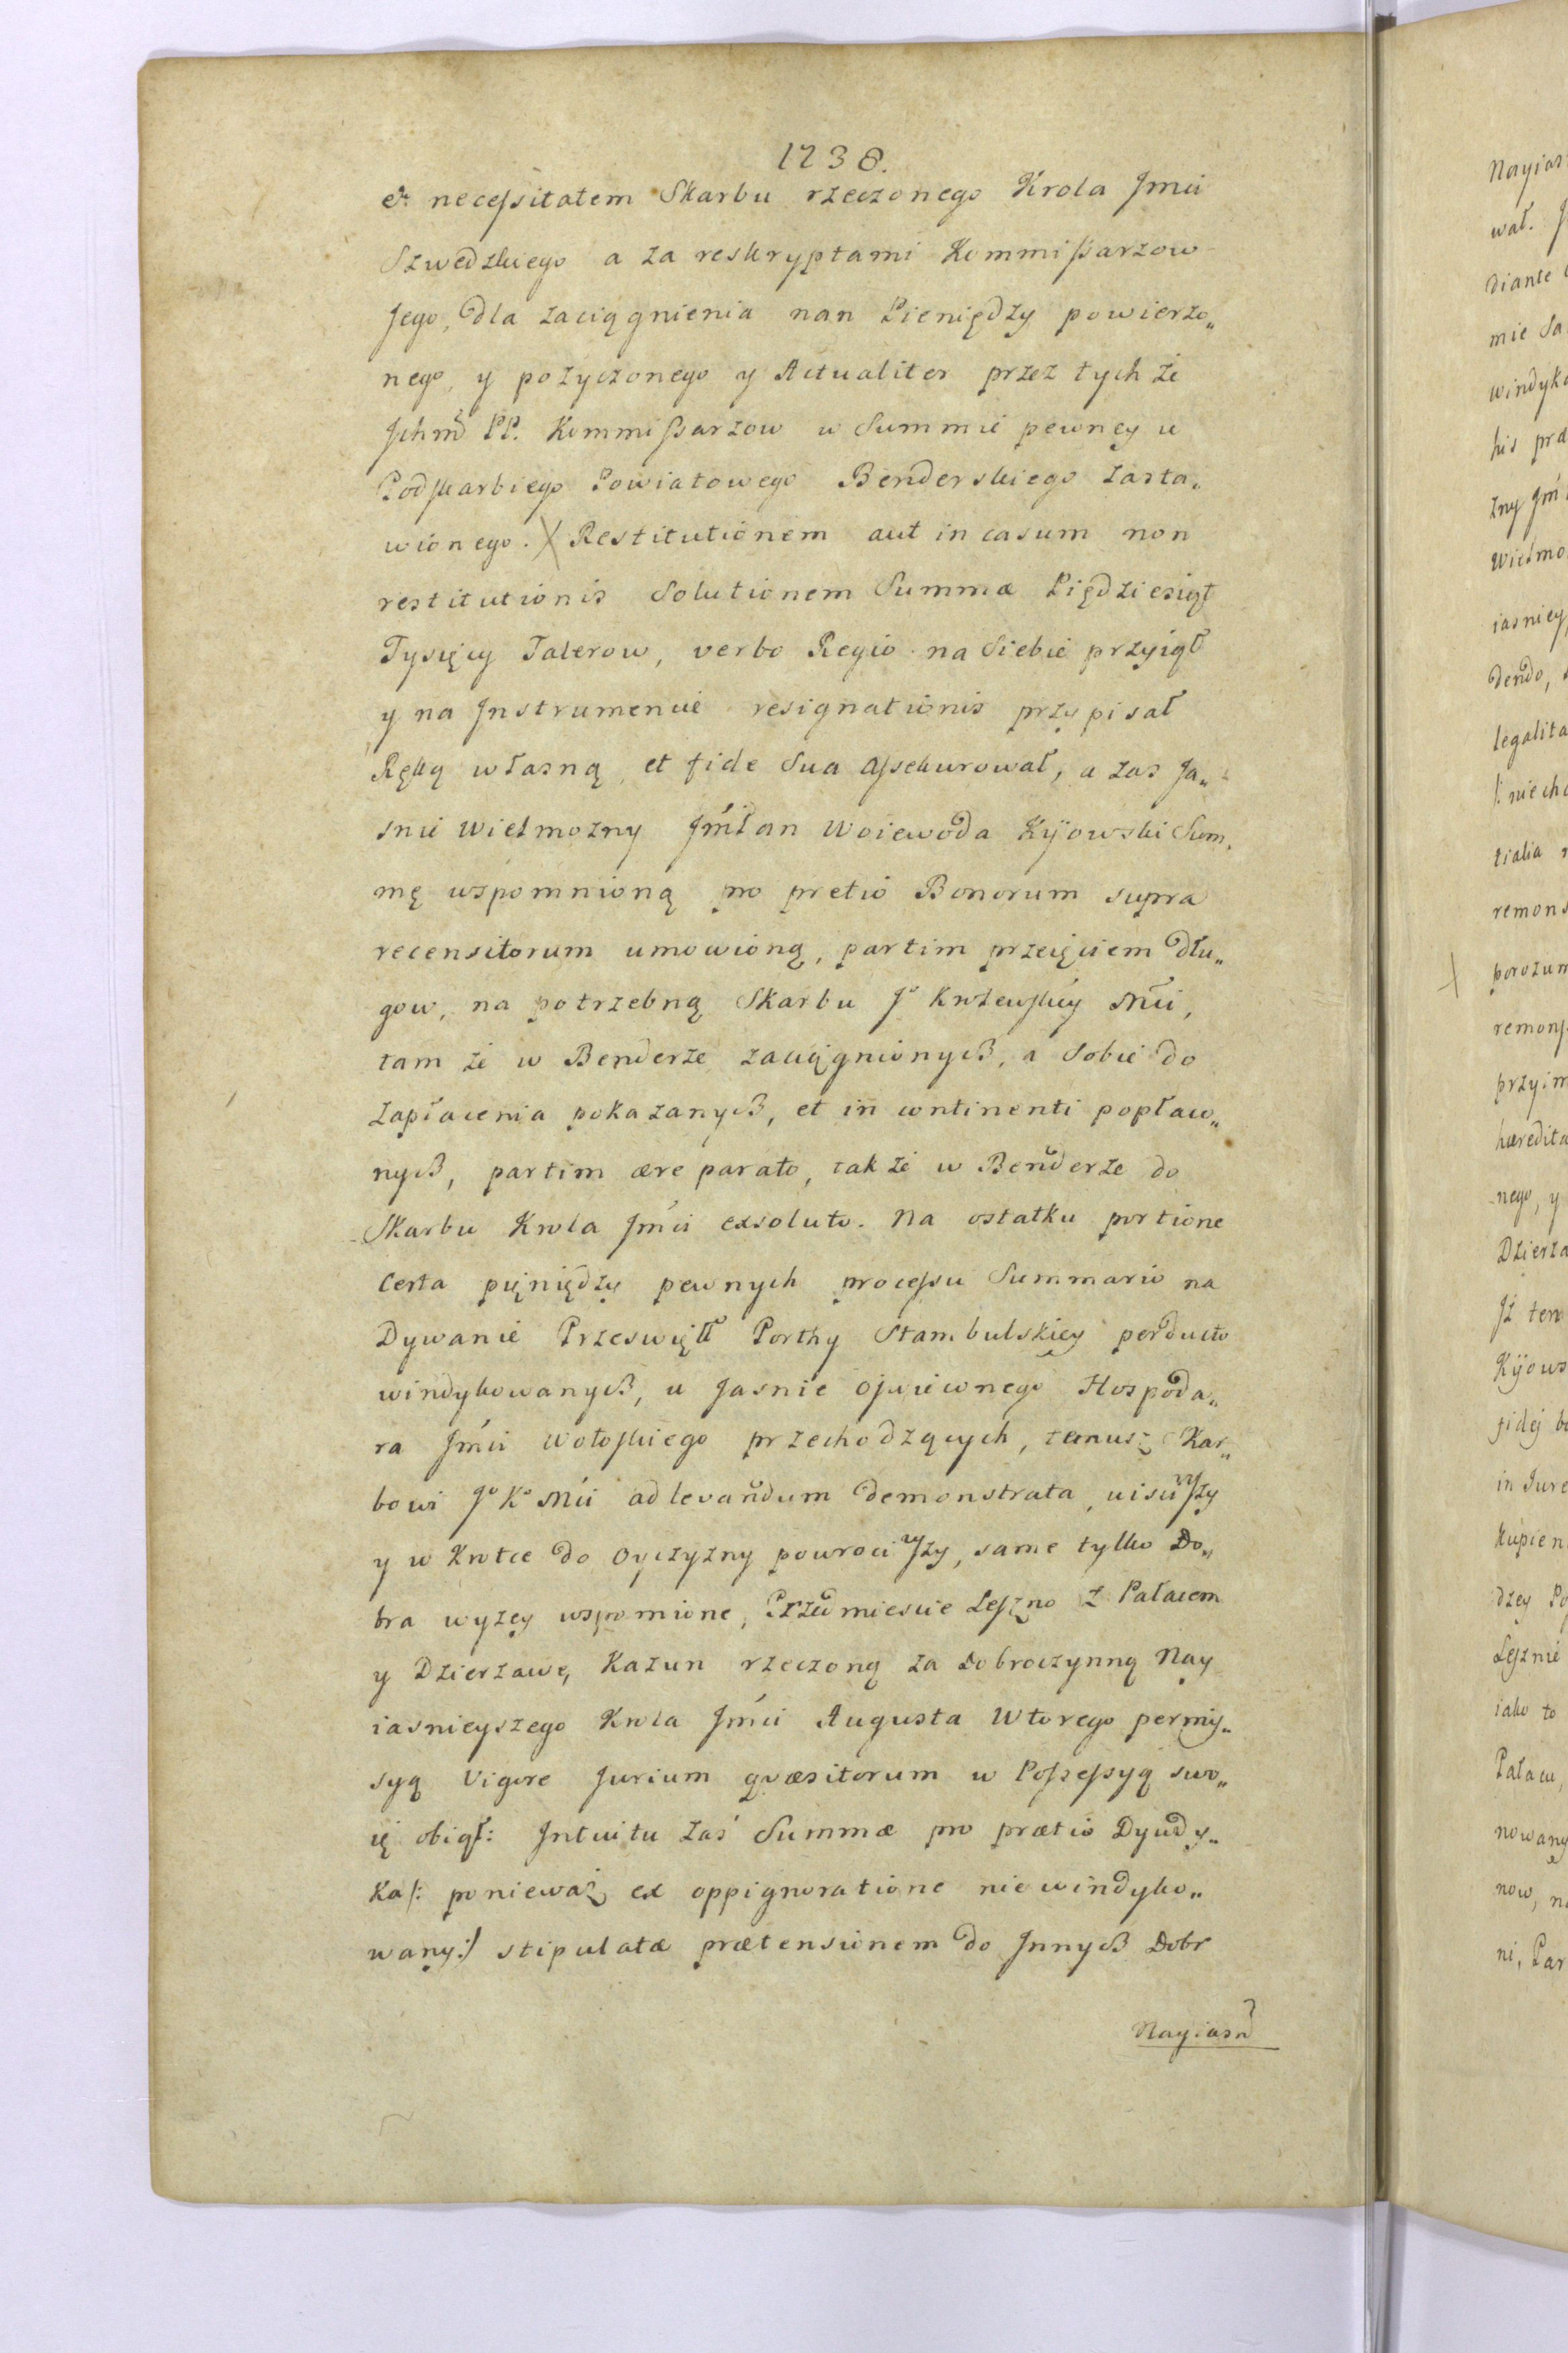 1738.
et necessitatem Skarbu rzeczonego Krola Jmci
Szwedzkiego a za reskryptami Kommissarzow
Jego, dla zaciągnienia nan Pieniędzy powierzo„
nego, y pozyczonego y Actualiter przez tych że
Jchmć PP. Kommissarzow w Summie pewney u
Podskarbiego Powiatowego Benderskiego zasta„
wionego. X Restitutionem aut in casum non
restitutionis Solutionem Summæ Piędziesiąt
Tysięcy Talerow, verbo Regio na Siebie przyiął
y na Jnstrumencie resignationis przypisał
Ręką własną, et fide Sua assekurował, a zas Ja„
snie Wielmozny JmPan Woiewoda Kÿowski Sum„
mę wspomnioną pro pretio Bonorum supra
recensitorum umowioną, partim przeięciem dłu„
gow, na potrzebną Skarbu Jo Krolewskiey Mci,
tam że w Benderze zaciągnionych, a Sobie do
zapłacenia pokazanych, et in continenti popłaco„
nych, partim ære parato, tak że w Benderze do
Skarbu Krola Jmci exsoluto. Na ostatku portione
Certa pięniędzy pewnych processu Summario na
Dywanie Prześwięt Porthy Stambulskiey perducto
windykowanych, u Jasnie Oswieconego Hospoda„
ra Jmci Wołoskiego przechodzących, temusz Skar„
bowi Jo Ko Mci ad levandum demonstrata, uisciwszy
y w Krotce do Oyczyzny powrociwszy, same tylko Do„
bra wyzey wspomione, Przedmiescie Leszno z Pałacem
y Dzierzawę, Kazun rzeczoną za Dobroczynną Nay
iasnieyszego Krola Jmci Augusta Wtorego permis„
syą Vigore Jurium quæsitorum w Possessyą swo„
ię obiął: Jntuitu zaś Summæ pro prætio Dyudy„
ka /: poniewaz ex oppignoratione niewindyko„
wany :/ stipulatæ prætensionem do Jnnych Dobr
Nayiasn